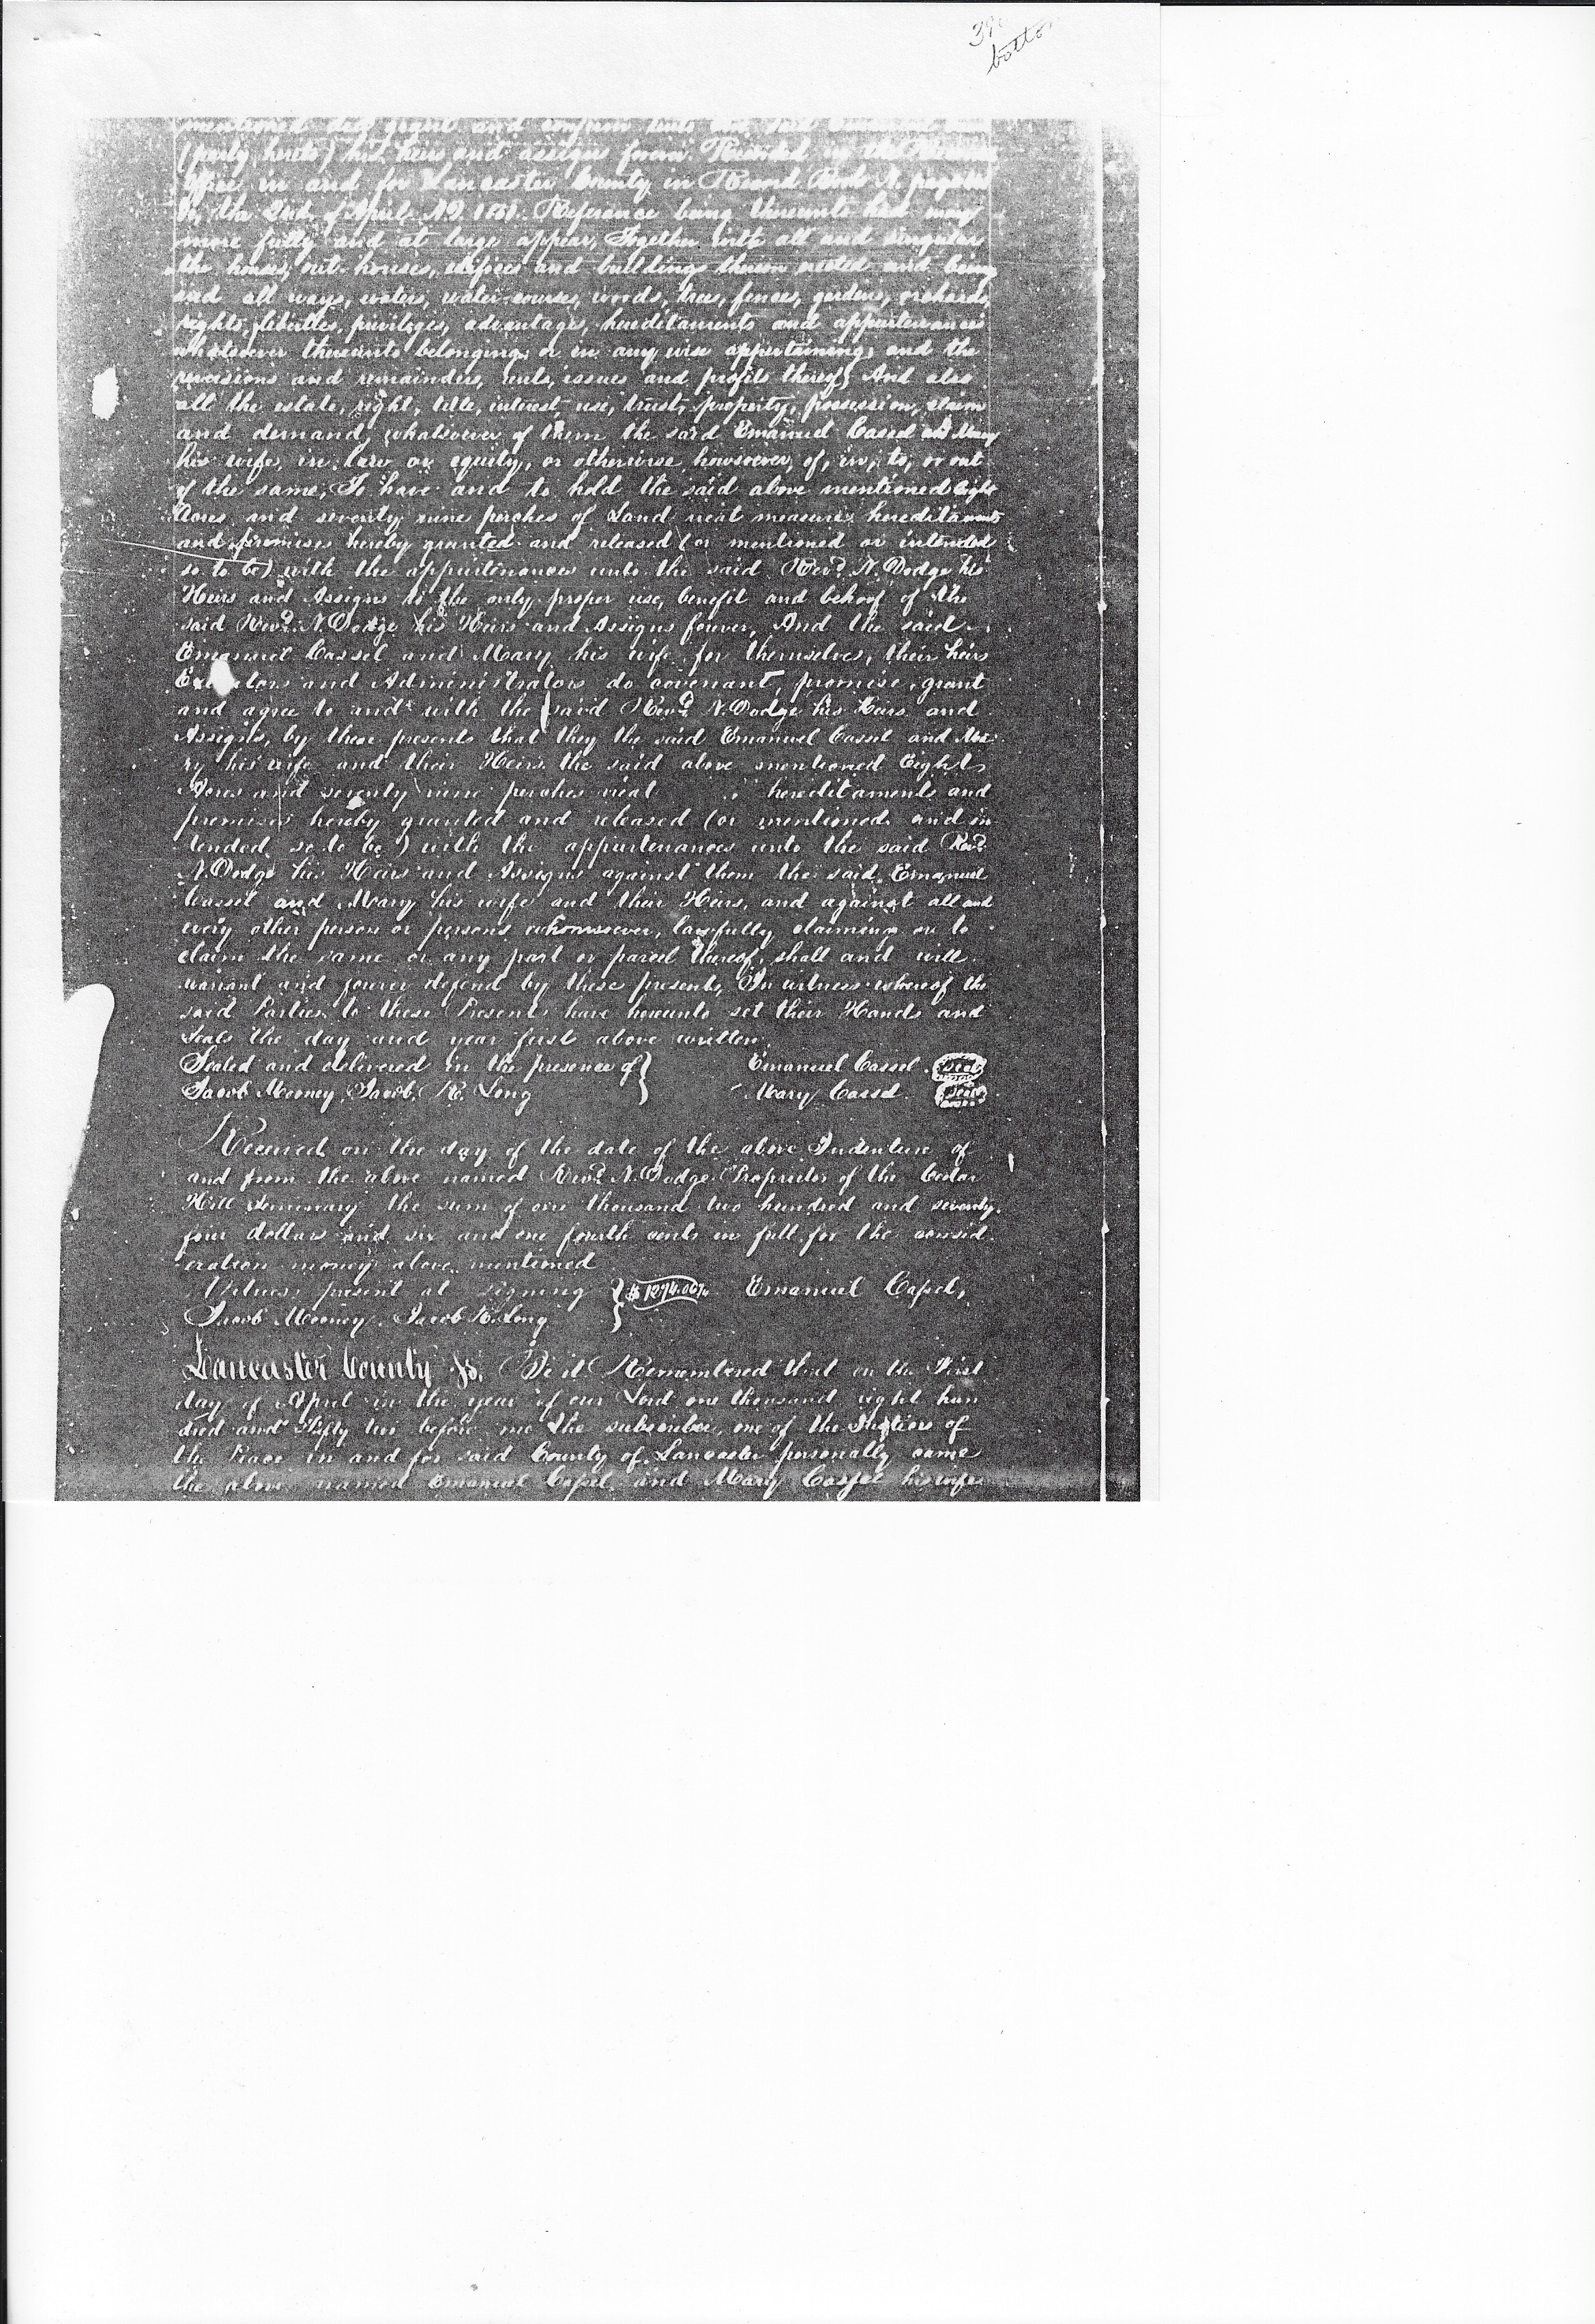 bottom
mentioned did grant and confirm unto the said Emanuel
(party hereto) his heirs and assigns forever. Recorded in the
Office in and for Lancaster County in Record Book N. page
On the 2nd. of April AD. 1851. Reference being thereunto had may
more fully and at large appear, Together with all and singular
the houses, out-houses, edifices and buildings thereon erected and being
and all ways, waters, water-courses, woods, trees, fences, gardens, orchards,
rights, liberties, privileges, advantages, hereditaments and appurtenances
whatsoever thereunto belonging, or in any wise appertaining, and the
reversions and remainders, rents, issues and profits thereof; And also
all the estate, right, title, interest, use, trust, property, possession, claim
and demand, whatsoever of them the said Emanuel Cassel and Mary
his wife, in law or equity, or otherwise howsoever, of, in, to, or out
of the same; To have and to hold the said above mentioned Eight
Acres and seventy nine perches of Land neat measure, hereditaments
and premises hereby granted and released (or mentioned or intended
so to be) with the appurtenances unto the said Revd. N. Dodge his
Heirs and Assigns to the only proper use, benefit and behoof of the
said Revd. N. Dodge his Heirs and Assigns forever, And the said
Emanuel Cassel and Mary his wife for themselves, their heirs
Executors and Administrators do covenant, promise, grant
and agree to and with the said Revd. N. Dodge his Heirs and
Assigns, by these presents that they the said Emanuel Cassel and Ma-
ry his wife and their Heirs the said above mentioned Eight
Acres and seventy nine perches neat hereditaments and
premises hereby granted and released (or mentioned and in
tended so to be) with the appurtenances unto the said Revd.
N. Dodge his Heirs and Assigns against them the said Emanuel
Cassel and Mary his wife and their Heirs, and against all and
every other person or persons whomsoever, lawfully claiming or to
claim the same or any part or parcel thereof, shall and will
warrant and forever defend by these presents, In witness whereof the
said Parties to these Presents have hereunto set their Hands and
Seals the day and year first above written.
Sealed and delivered in the presence of } Emanuel Cassel seal
Jacob Mooney, Jacob R. Long } Mary Cassel seal
Received on the day of the date of the above Indenture of
and from the above named Revd. N. Dodge Proprietor of the Cedar
Hill Seminary the sum of one thousand two hundred and seventy
four dollars and six and one fourth cents in full for the consid
eration money above mentioned
Witness present at signing } $1274.06¼ Emanuel Cassel,
Jacob Mooney, Jacob R. Long }
Lancaster County Ss. Be it Remembered that on the First
day of April in the year of our Lord one thousand eight hun
dred and Fifty two before me the subscriber, one of the Justices of
the Peace in and for said County of Lancaster personally came
the above named Emanuel Cassel and Mary Cassel his wife